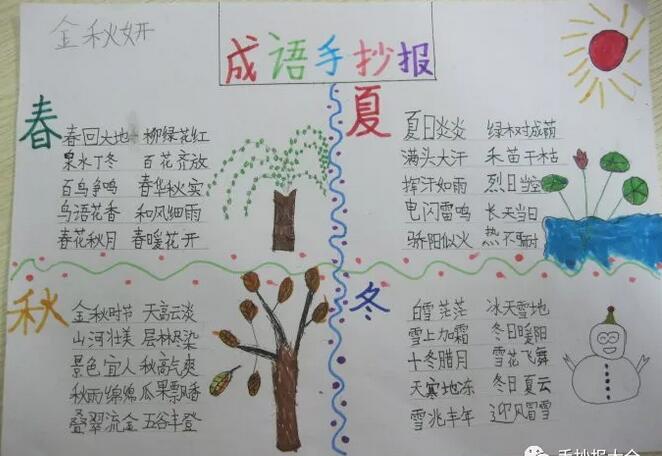 金秋妍
成语手抄报
春
春回大地 柳绿花红
泉水丁冬 百花齐放
百鸟争鸣 春华秋实
鸟语花香 和风细雨
春花秋月 春暖花开
夏
夏日炎炎 绿树成荫
满头大汗 禾苗干枯
挥汗如雨 烈日当空
电闪雷鸣 长天当日
骄阳似火 热不可耐
秋
金秋时节 天高云淡
山河壮美 层林尽染
景色宜人 秋高气爽
秋雨绵绵 瓜果飘香
叠翠流金 五谷丰登
冬
白雪茫茫 冰天雪地
雪上加霜 冬日暖阳
十冬腊月 雪花飞舞
天寒地冻 冬日夏云
雪兆丰年 迎风冒雪
手抄报大全